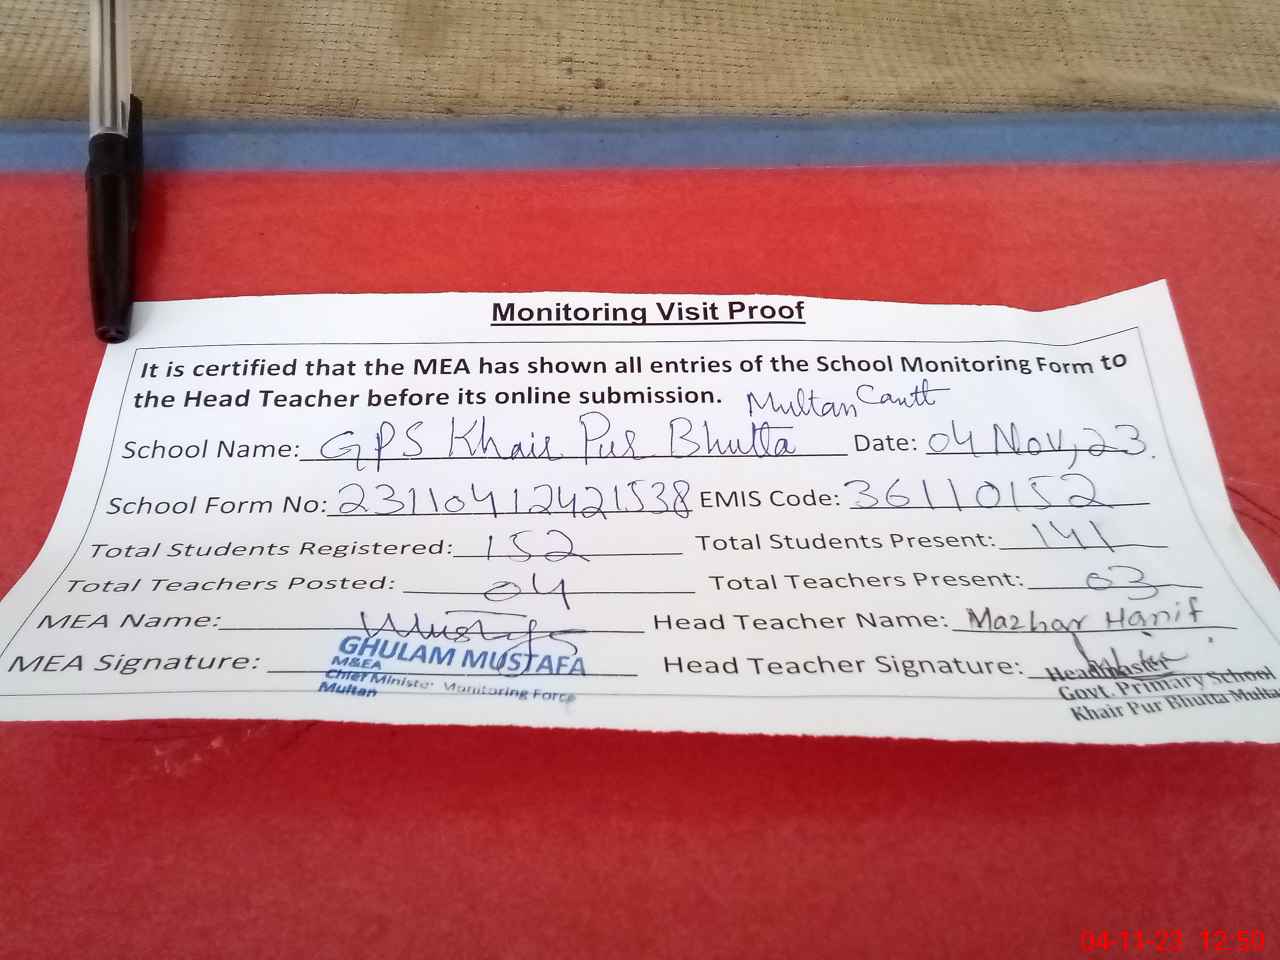 Monitoring Visit Proof
It is certified that the MEA has shown all entries of the School Monitoring Form to
the Head Teacher before its online submission. Multan Cantt
School Name: GPS Khair Pur Bhutta Date: 04 Nov, 23.
School Form No: 23110412421538 EMIS Code: 36110152
Total Students Registered: 152 Total Students Present: 141
Total Teachers Posted: 04 Total Teachers Present: 03
MEA Name: Mustafa Head Teacher Name: Mazhar Hanif
MEA Signature: GHULAM MUSTAFA Head Teacher Signature: Headmaster
M&EA
Chief Minister Monitoring Force
Multan
Govt. Primary School
Khair Pur Bhutta Multa
04-11-23 12:50